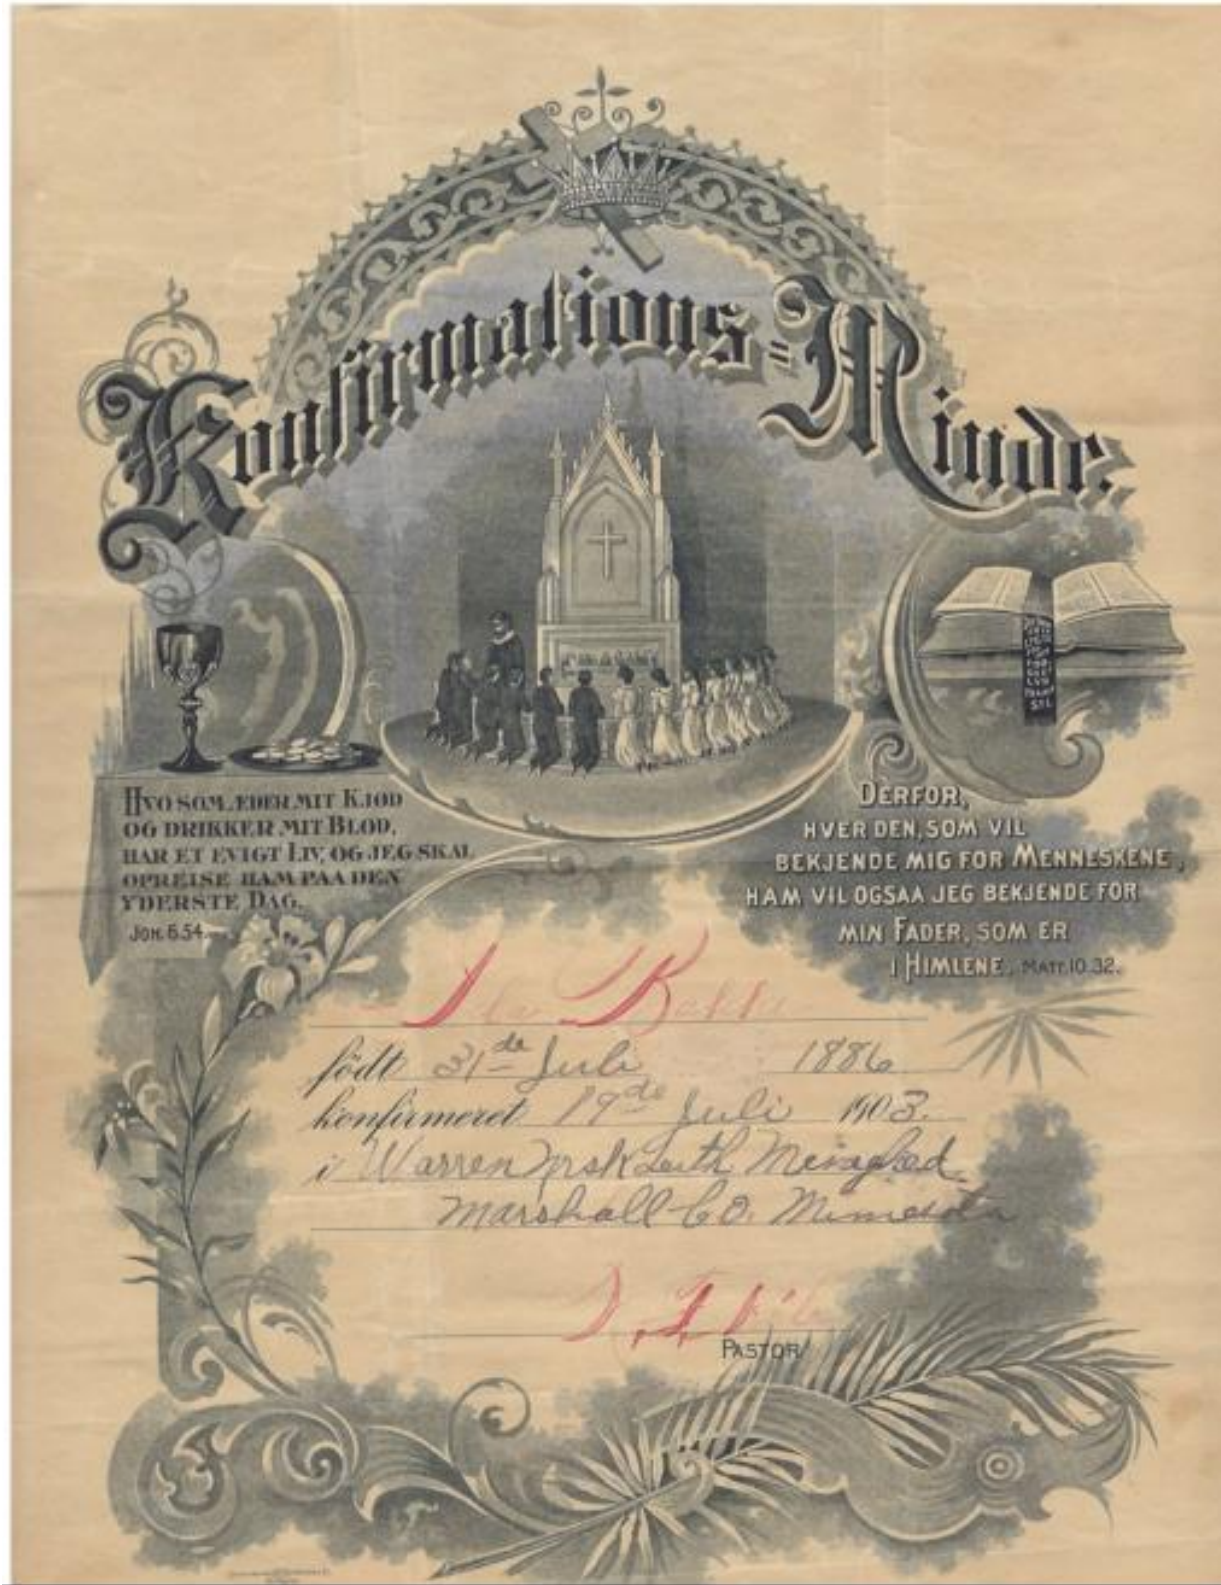 Konfirmations-Minde.
HVO SOM ÆDER MIT KJØD
OG DRIKKER MIT BLOD,
HAR ET EVIGT LIV, OG JEG SKAL
OPREISE HAM PAA DEN
YDERSTE DAG.
JOH. 6.54.
DERFOR,
HVER DEN, SOM VIL
BEKJENDE MIG FOR MENNESKENE,
HAM VIL OGSAA JEG BEKJENDE FOR
MIN FADER, SOM ER
I HIMLENE, MATT. 10.32.
født 31te Juli 1886
konfirmeret 19de Juli 1903.
i Warren Norsk Luth Menighed
Marshall Co. Minnesota
PASTOR